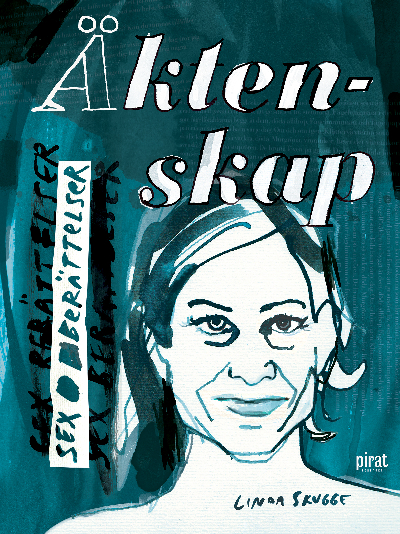 Äkten-
skap
SEX BERÄTTELSER
SEX BERÄTTELSER
SEX BERÄTTELSER
pirat
LINDA SKUGGE